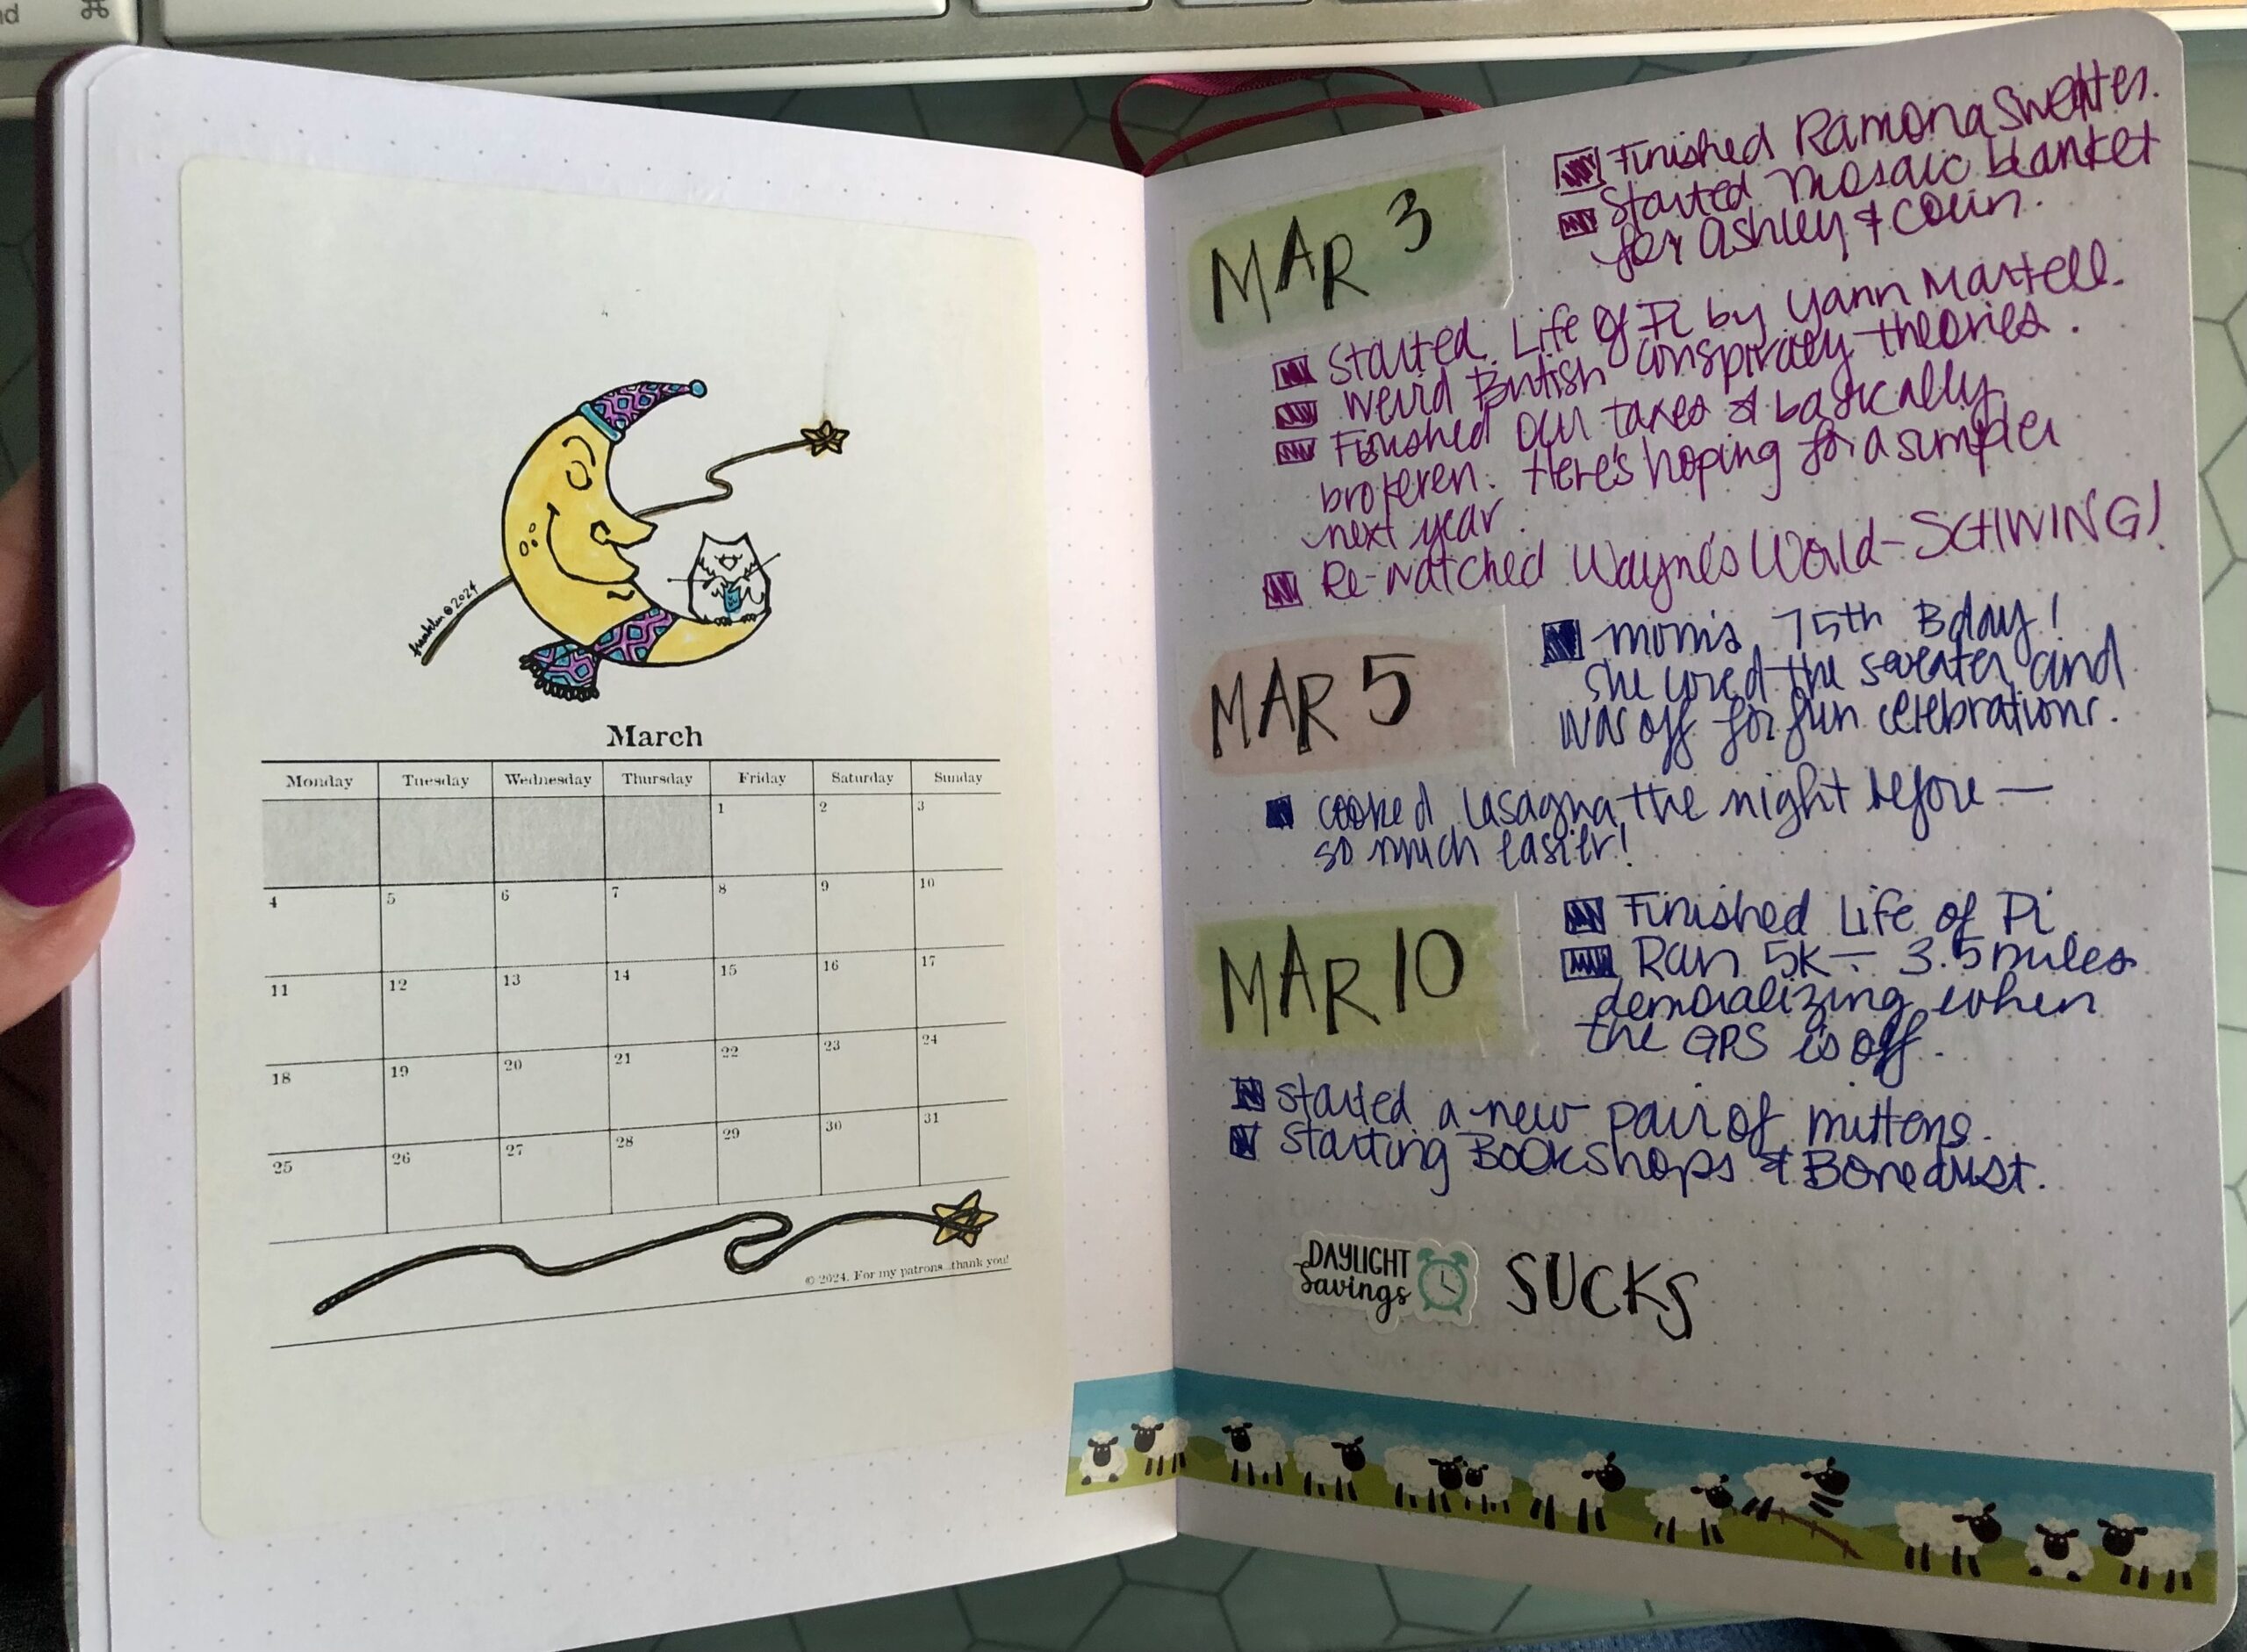 ⌘
franklin © 2024
March
Monday Tuesday Wednesday Thursday Friday Saturday Sunday
1 2 3
4 5 6 7 8 9 10
11 12 13 14 15 16 17
18 19 20 21 22 23 24
25 26 27 28 29 30 31
© 2024. For my patrons...thank you!
MAR 3
Finished Ramona Sweater.
Started Mosaic blanket
for Ashley & Colin.
Started Life of Pi by Yann Martell.
Weird British conspiracy theories.
Finished our taxes & basically
broke even. Here's hoping for a simpler
next year.
Re-watched Wayne's World-SCHWING!
MAR 5
Mom's 75th Bday!
She loved the sweater and
was off for fun celebrations.
cooked lasagna the night before —
so much easier!
MAR 10
Finished Life of Pi.
Ran 5K - 3.5 miles
demoralizing when
the GPS is off.
Started a new pair of mittens.
Starting Bookshops & Bonedust.
DAYLIGHT
Savings
SUCKS